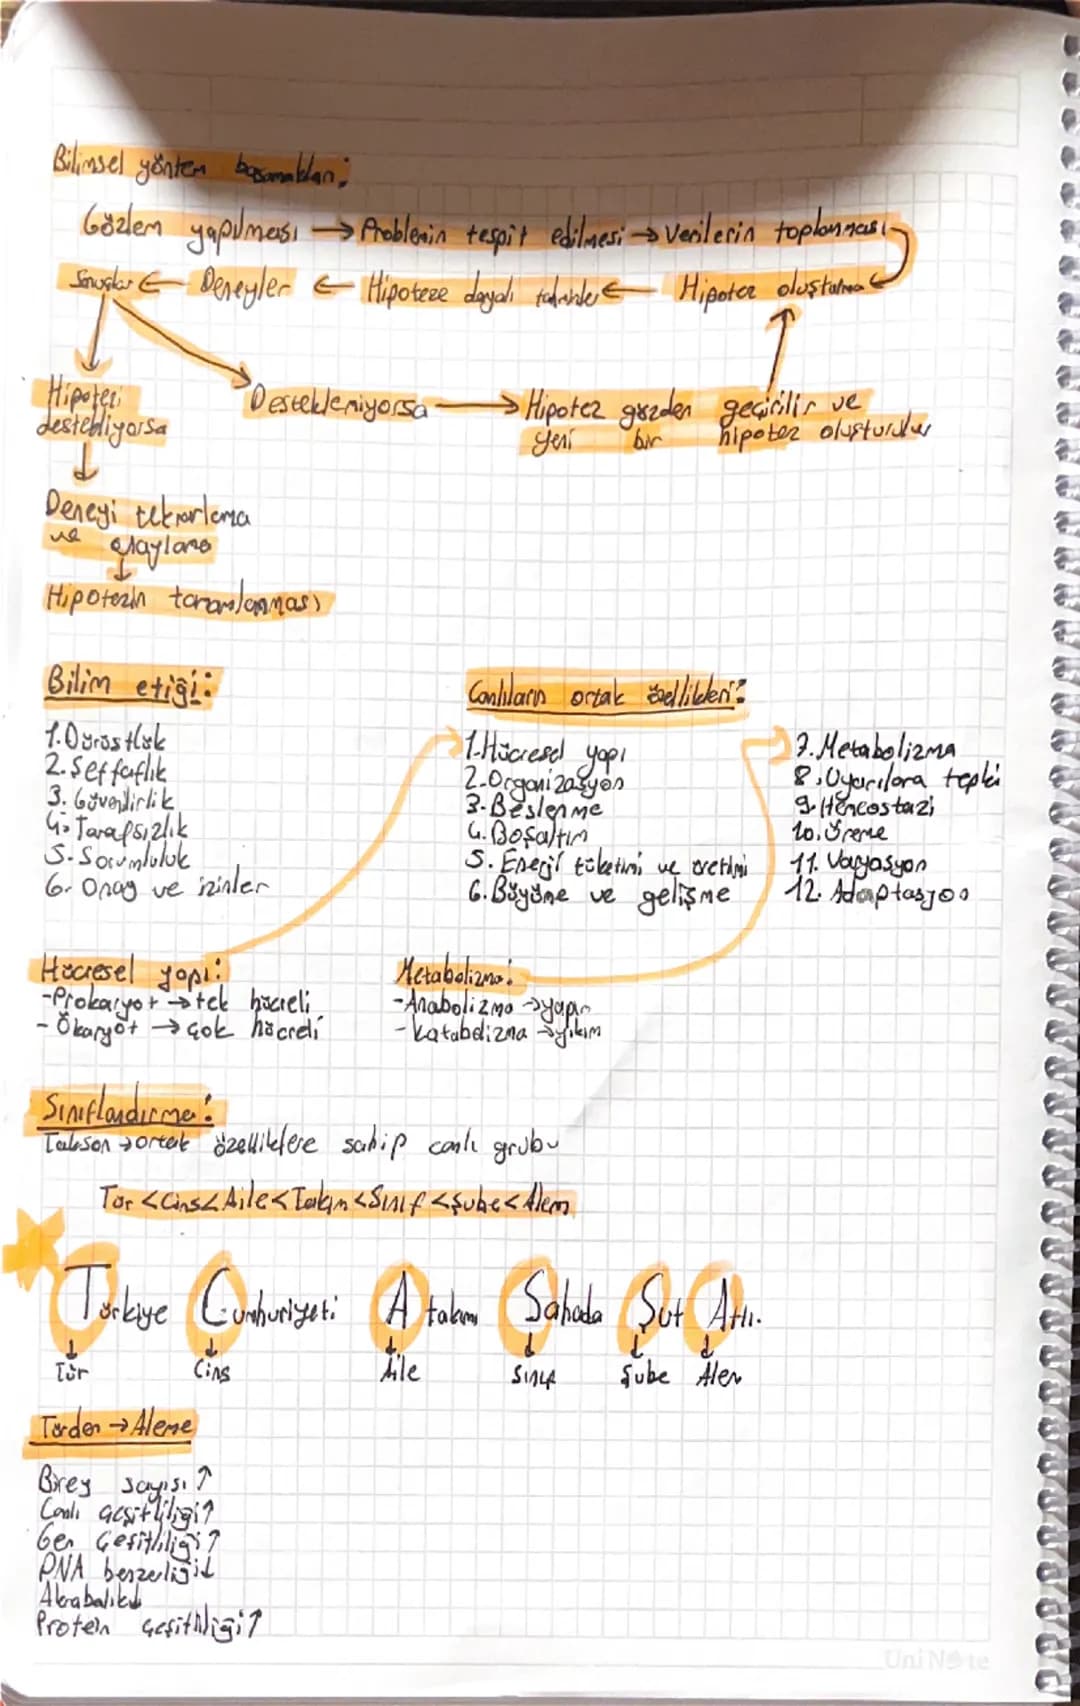 Bilimsel yöntem basamakları;
Gözlem yapılması → Problemin tespit edilmesi → Verilerin toplanması
Sonuçlar ← Deneyler ← Hipoteze dayalı tahminler ← Hipotez oluşturma
Hipotezi
destekliyorsa
Desteklemiyorsa → Hipotez gözden geçirilir ve
yeni bir hipotez oluşturulur
Deneyi tekrarlama
ve onaylama
Hipotezin tanımlanması
Bilim etiği:
1. Dürüstlük
2. Şeffaflık
3. Güvenilirlik
4. Tarafsızlık
5. Sorumluluk
6. Onay ve izinler
Canlıların ortak özellikleri:
1. Hücresel yapı
2. Organizasyon
3. Beslenme
4. Boşaltım
5. Enerji tüketimi ve üretimi
6. Büyüme ve gelişme
7. Metabolizma
8. Uyarılara tepki
9. Homeostazi
10. Üreme
11. Varyasyon
12. Adaptasyon
Hücresel yapı:
- Prokaryot → tek hücreli
- Ökaryot → çok hücreli
Metabolizma:
- Anabolizma → yapım
- Katabolizma → yıkım
Sınıflandırma:
Takson → ortak özelliklere sahip canlı grubu
Tür < Cins < Aile < Takım < Sınıf < Şube < Alem
Türkiye Cumhuriyeti Atakım Sahada Şut Attı.
Tür Cins Aile Sınıf Şube Alem
Türden → Aleme
Birey sayısı ↑
Canlı çeşitliliği ↑
Gen çeşitliliği ↑
DNA benzerliği ↓
Akrabalık ↓
Protein çeşitliliği ↑
UniNote